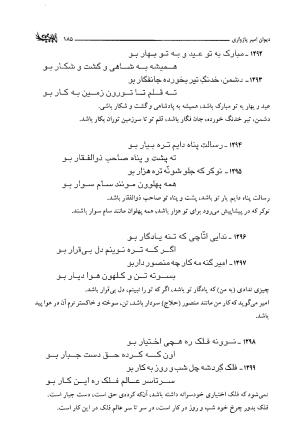 دیوان امیر پازواری
۱۸۵
۱۲۹۲- مبارک به تو عید و به تو بهار بو
همیشه به شاهی و گشت و شکار بو
۱۲۹۳- دشمن، خدنگِ تیر بخورده جانفگار بو
ته قلم تا تورون زمین به کار بو
عید و بهار به تو مبارک باشد، همیشه به پادشاهی و گشت و شکار باشی.
دشمن، تیر خدنگ خورده، جان فگار باشد، قلم تو تا سرزمین توران بکار باشد.
۱۲۹۴- رسالت پناه دایم تره یار بو
ته پشت و پناه صاحب ذوالفقار بو
۱۲۹۵- نوکر که جلو شونه تره هزار بو
همه پهلوون مونند سام سوار بو
رسالت پناه دایم، یار تو باشد، پشت و پناه تو صاحب ذوالفقار باشد.
نوکر که در پیشاپیش می‌رود برای تو هزار باشد، همه پهلوان مانند سام سوار باشند.
۱۲۹۶- ندایی اتّاچی که تنه یادگار بو
اگر که تره نوینم دل بی‌قرار بو
۱۲۹۷- امیر گنه مه کار چه منصور دار بو
بسوته تن و کلهون هوا دیار بو
چیزی ندادی (به من) که یادگار تو باشد، اگر که تو را نبینم، دل بی‌قرار باشد.
امیر می‌گوید که کار من مانند منصور (حلاج) سردار باشد، تن، سوخته و خاکستر نرم آن در هوا پیدا باشد.
۱۲۹۸- نسرونه فلک ره هچی اختیار بو
اون که کرده حق دست جبار بو
۱۲۹۹- فلک گردشه چل شب و روز به کار بو
سرتاسر عالم فلک ره این کار بو
نمی‌شود که فلک اختیاری خودسرانه داشته باشد، آنچه که کرده‌ی حق است، دست جبار است.
فلک بدور چرخ خود شب و روز در کار است، در سر تا سر عالم فلک در این کار است.